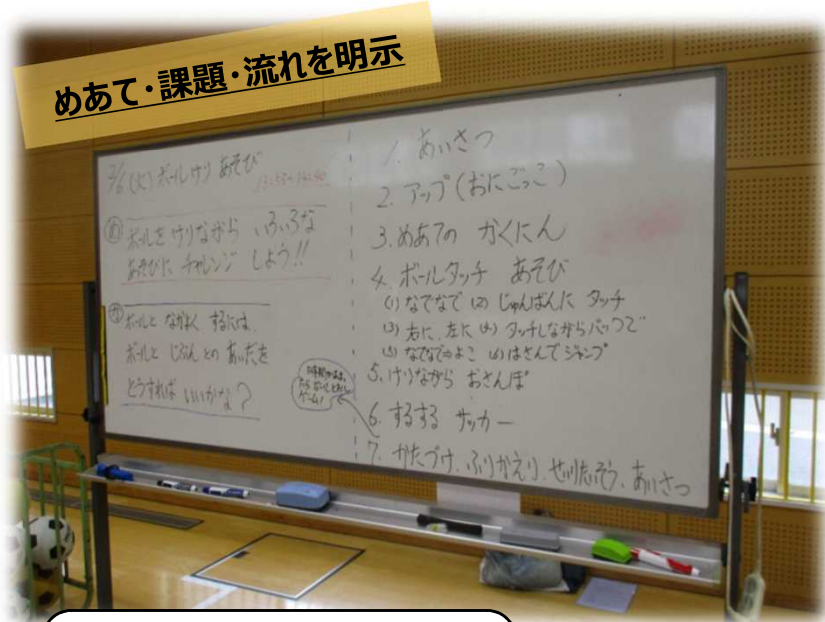 めあて・課題・流れを明示
2/6(火)ボールけり あそび
め ボールを けりながら いろいろな
あそびに チャレンジ しよう!!
ボールと なかよく するには、
ボールと じぶんとの あいだを
どうすれば いいかな?
1. あいさつ
2. アップ(おにごっこ)
3. めあての かくにん
4. ボールタッチ あそび
(1) なでなで (2) じゅんばんに タッチ
(3) 右に、左に (4) タッチしながらバックで
(5) なでなで⇒よこ (6) はさんでジャンプ
5. けりながら おさんぽ
6. するする サッカー
7. かたづけ、ふりかえり、せいりたいそう、あいさつ
ゲーム!